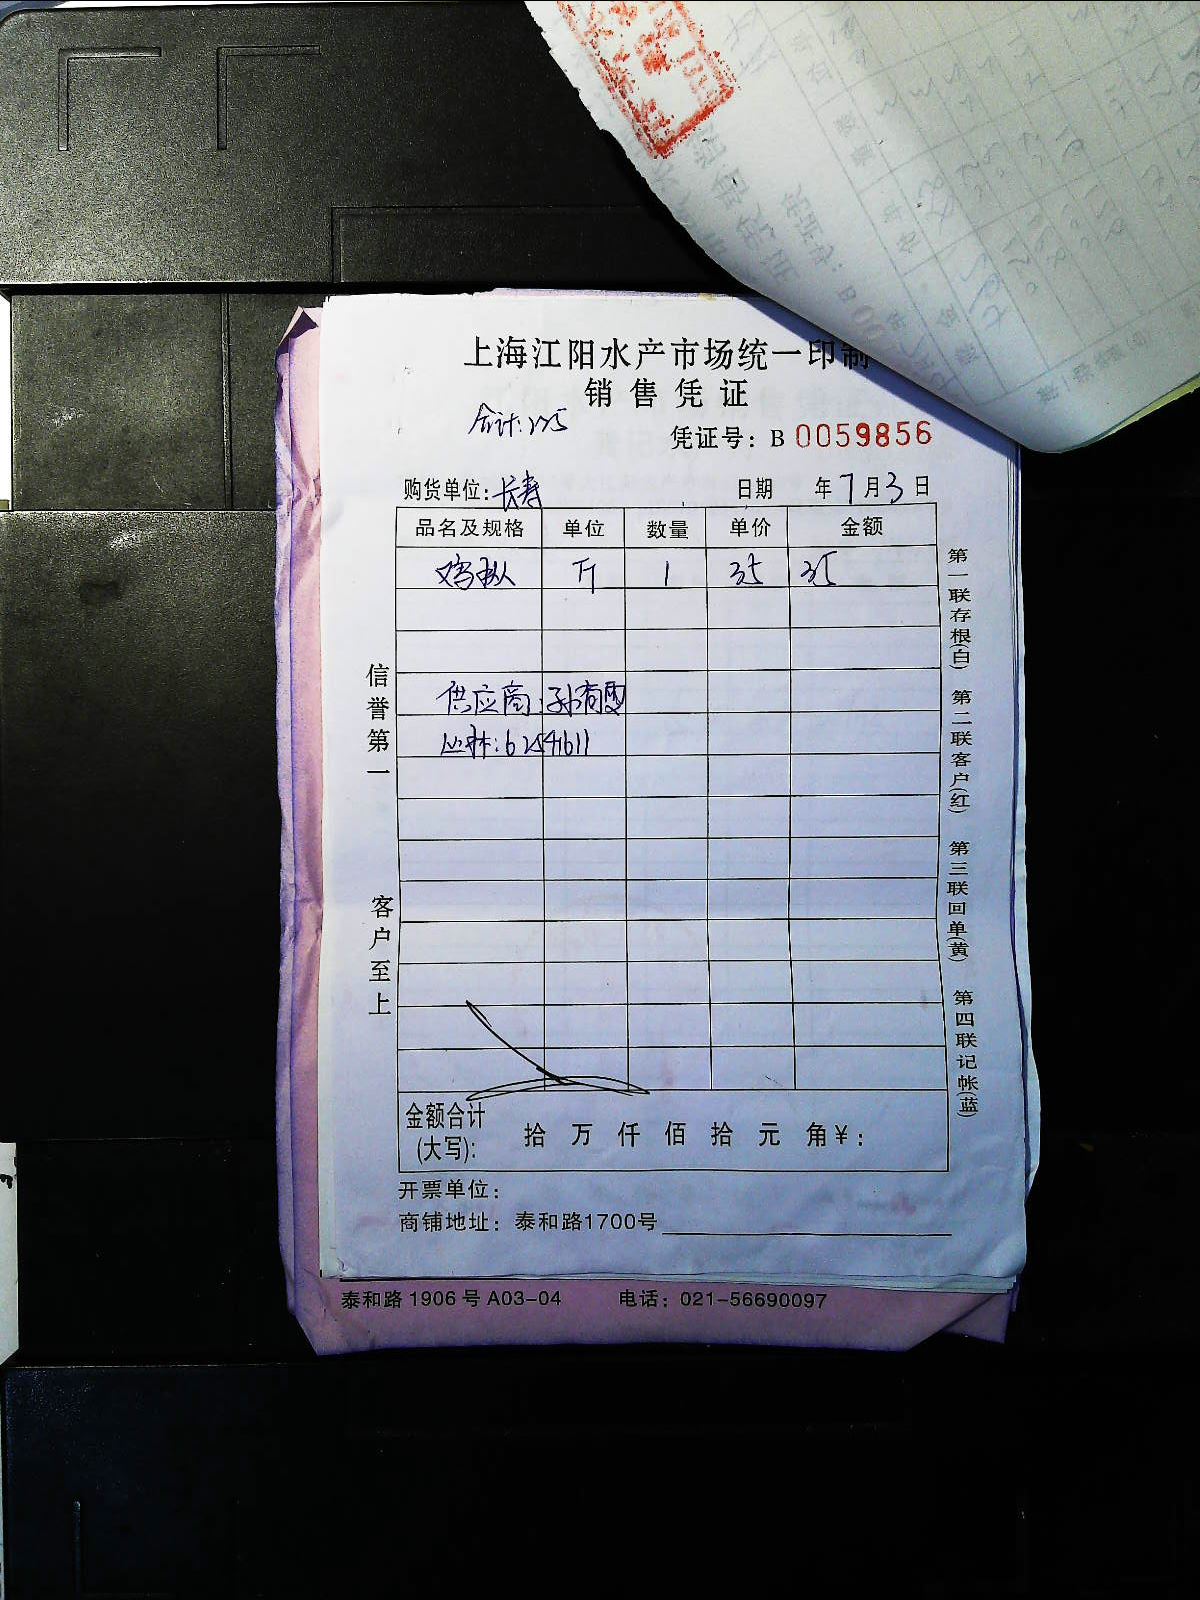 上海江阳水产市场统一印制
销售凭证
合计:
凭证号: B 0059856
购货单位: 长寿 日期 年 7 月 3 日
品名及规格 单位 数量 单价 金额
斤 1 35 35
供应商:
62541611
信誉第一
客户至上
第一联存根(白) 第二联客户(红) 第三联回单(黄) 第四联记帐(蓝)
金额合计(大写): 拾 万 仟 佰 拾 元 角 ¥:
开票单位:
商铺地址: 泰和路1700号
泰和路1906号A03-04 电话: 021-56690097